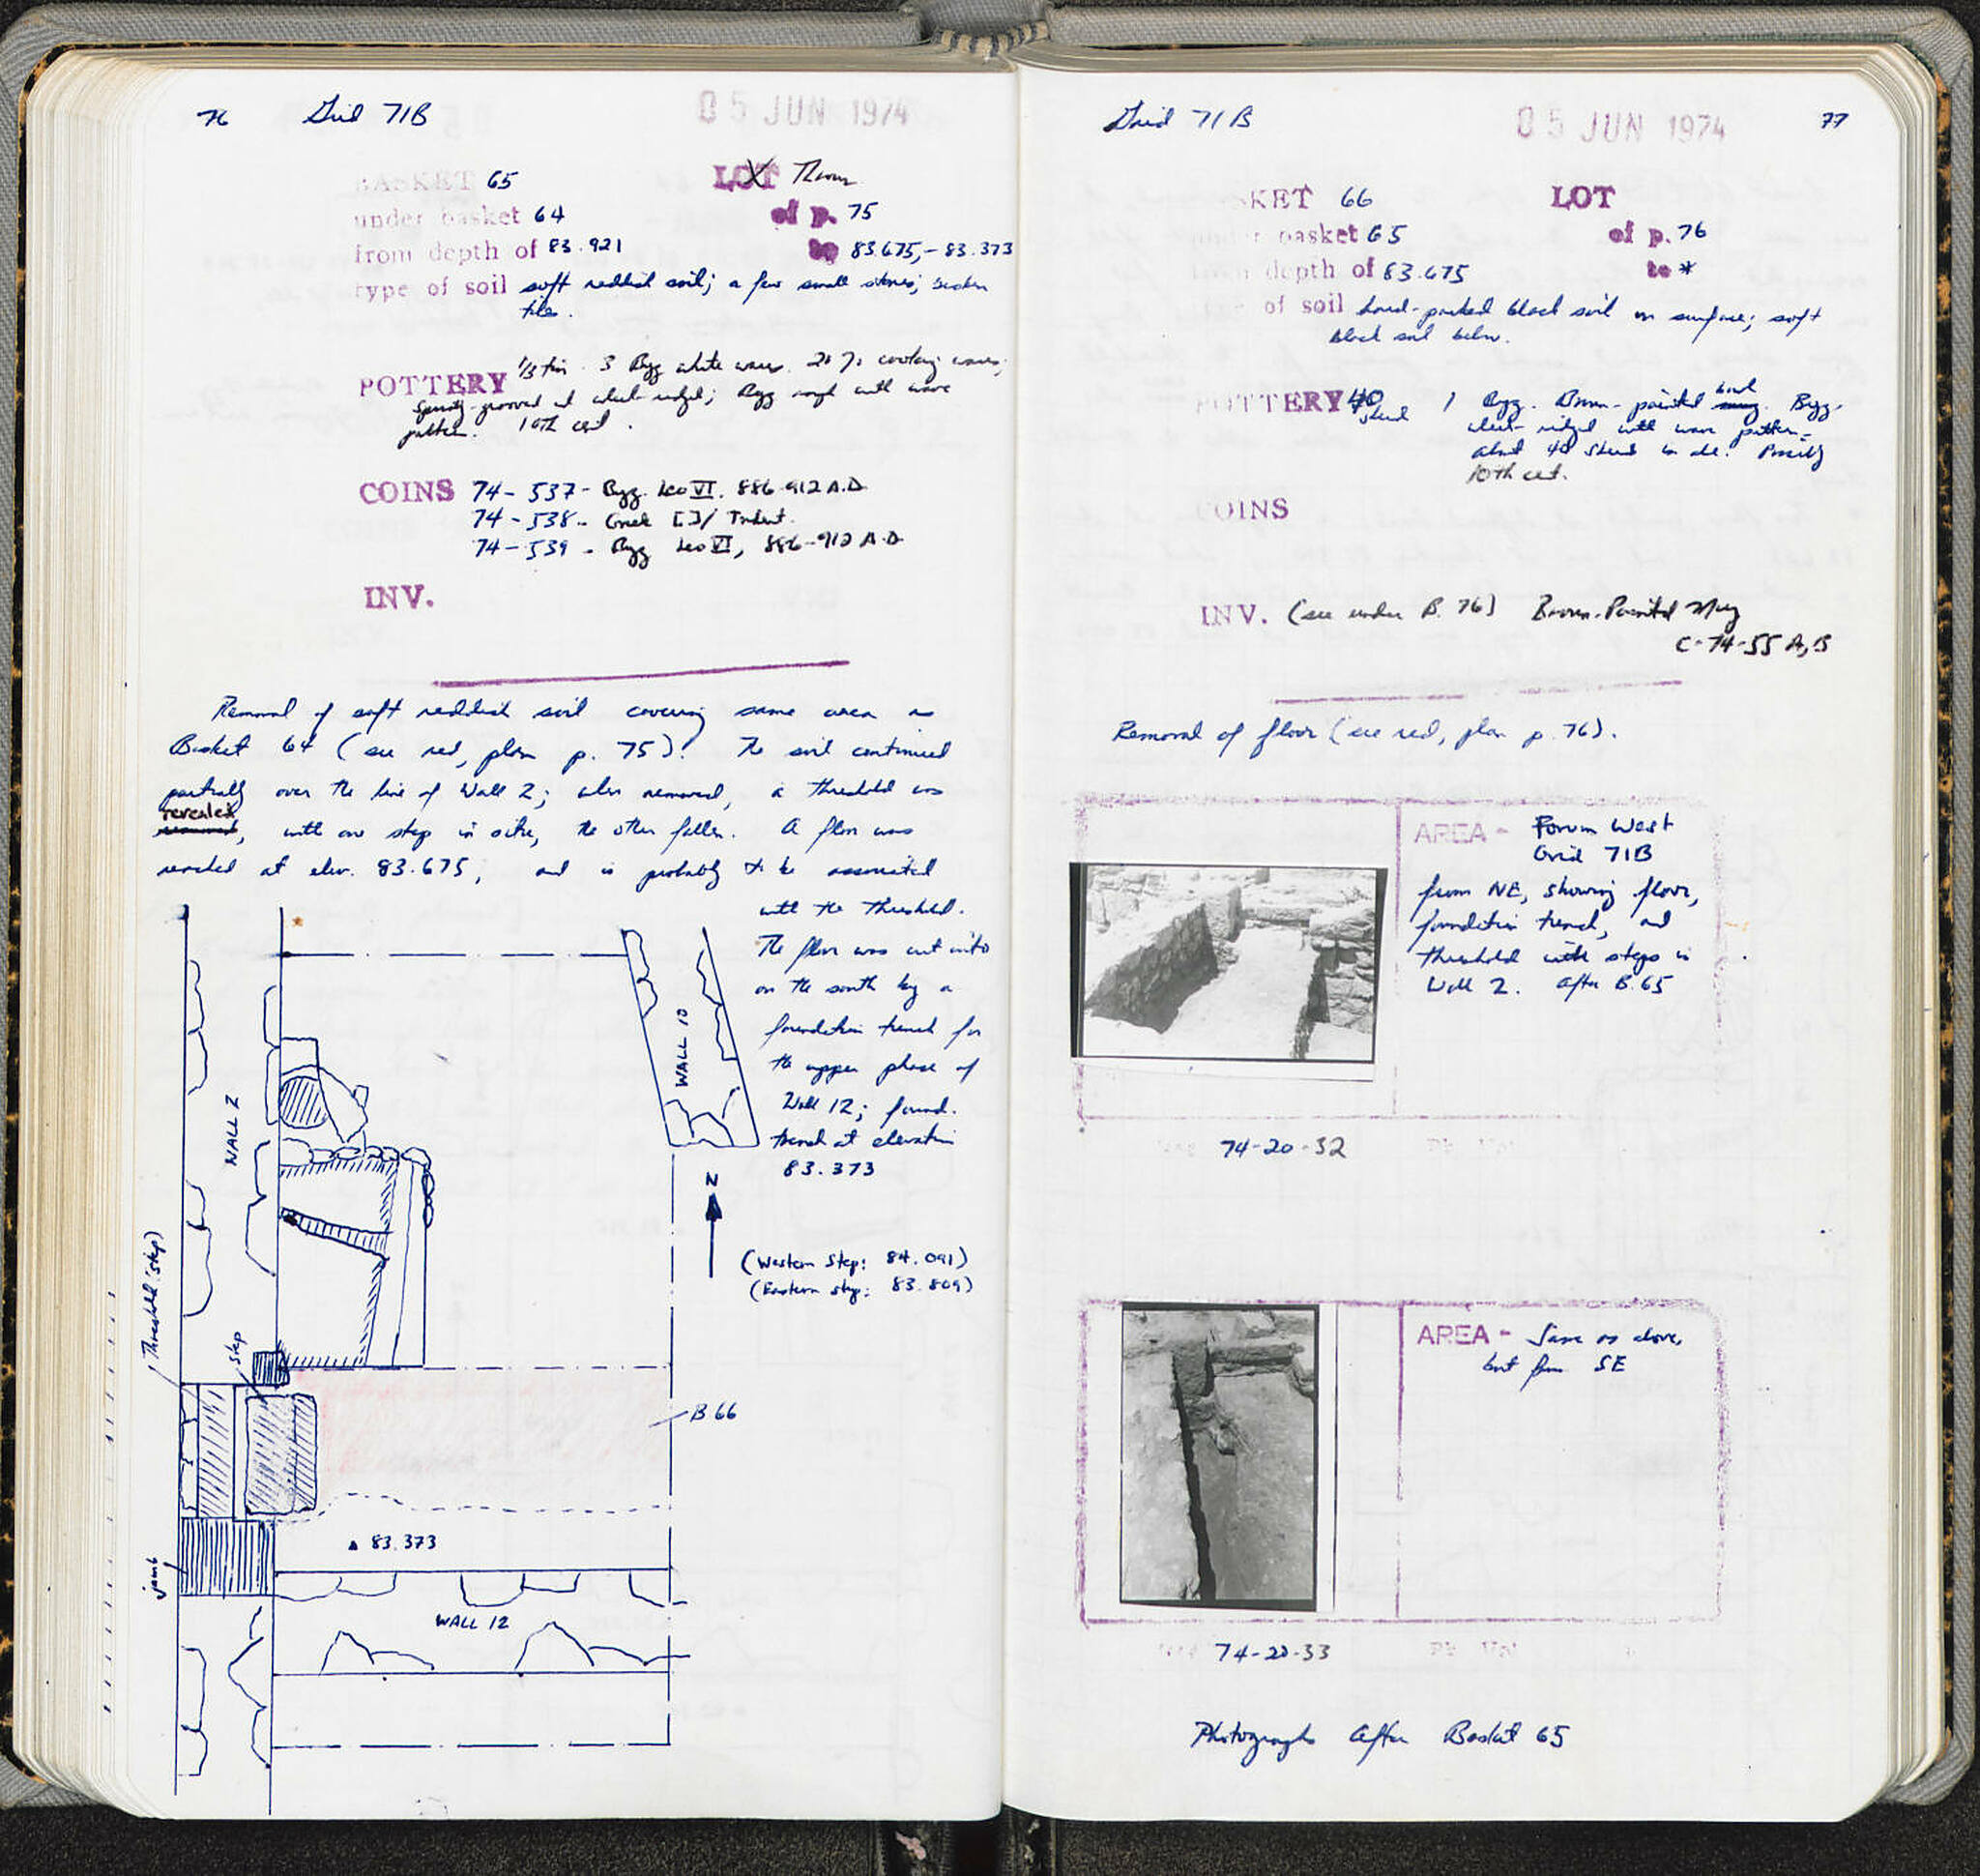 76 Grid 71B 05 JUN 1974
BASKET 65 LOT Throw
under basket 64 of p. 75
from depth of 83.921 to 83.675, - 83.373
type of soil soft reddish soil; a few small stones; broken
tile.
POTTERY 3 Byz white ware. 20% cooking wares;
grooved wheel-ridged; Byz with wave
pattern. 10th cent.
COINS 74-537 - Byz. Leo VI. 886-912 A.D
74-538 - Greek [ ]/ Trident.
74-539 - Byz Leo VI, 886-912 A.D
INV.
Removal of soft reddish soil covering same area as
Basket 64 (see red, plan p. 75). The soil continued
partially over the line of Wall 2; when removed, a threshold was
revealed, with one step in situ, the other fallen. A floor was
reached at elev. 83.675, and is probably to be associated
with the threshold.
The floor was cut into
on the south by a
foundation trench for
the upper phase of
Wall 12; found.
trench at elevation
83.373
WALL 10
WALL 2
N
(Western Step: 84.091)
(Eastern step: 83.809)
(Threshold step)
step
B 66
▲ 83.373
jamb
WALL 12
Grid 71B 05 JUN 1974 77
KET 66 LOT
under basket 65 of p. 76
from depth of 83.675 to *
of soil hard-packed black soil on surface; soft
black soil below.
POTTERY 40 sherd 1 Byz. Brown-painted bowl. Byz.
wheel-ridged with wave pattern-
about 40 sherds in all. Possibly
10th cent.
COINS
INV. (see under B. 76) Brown-Painted Mug
C-74-55 A, B
Removal of floor (see red, plan p. 76).
AREA - Forum West
Grid 71B
from NE, showing floor,
foundation trench, and
threshold with steps in
Wall 2. After B.65
74-20-32
AREA - Same as above,
but from SE
74-20-33
Photographs After Basket 65